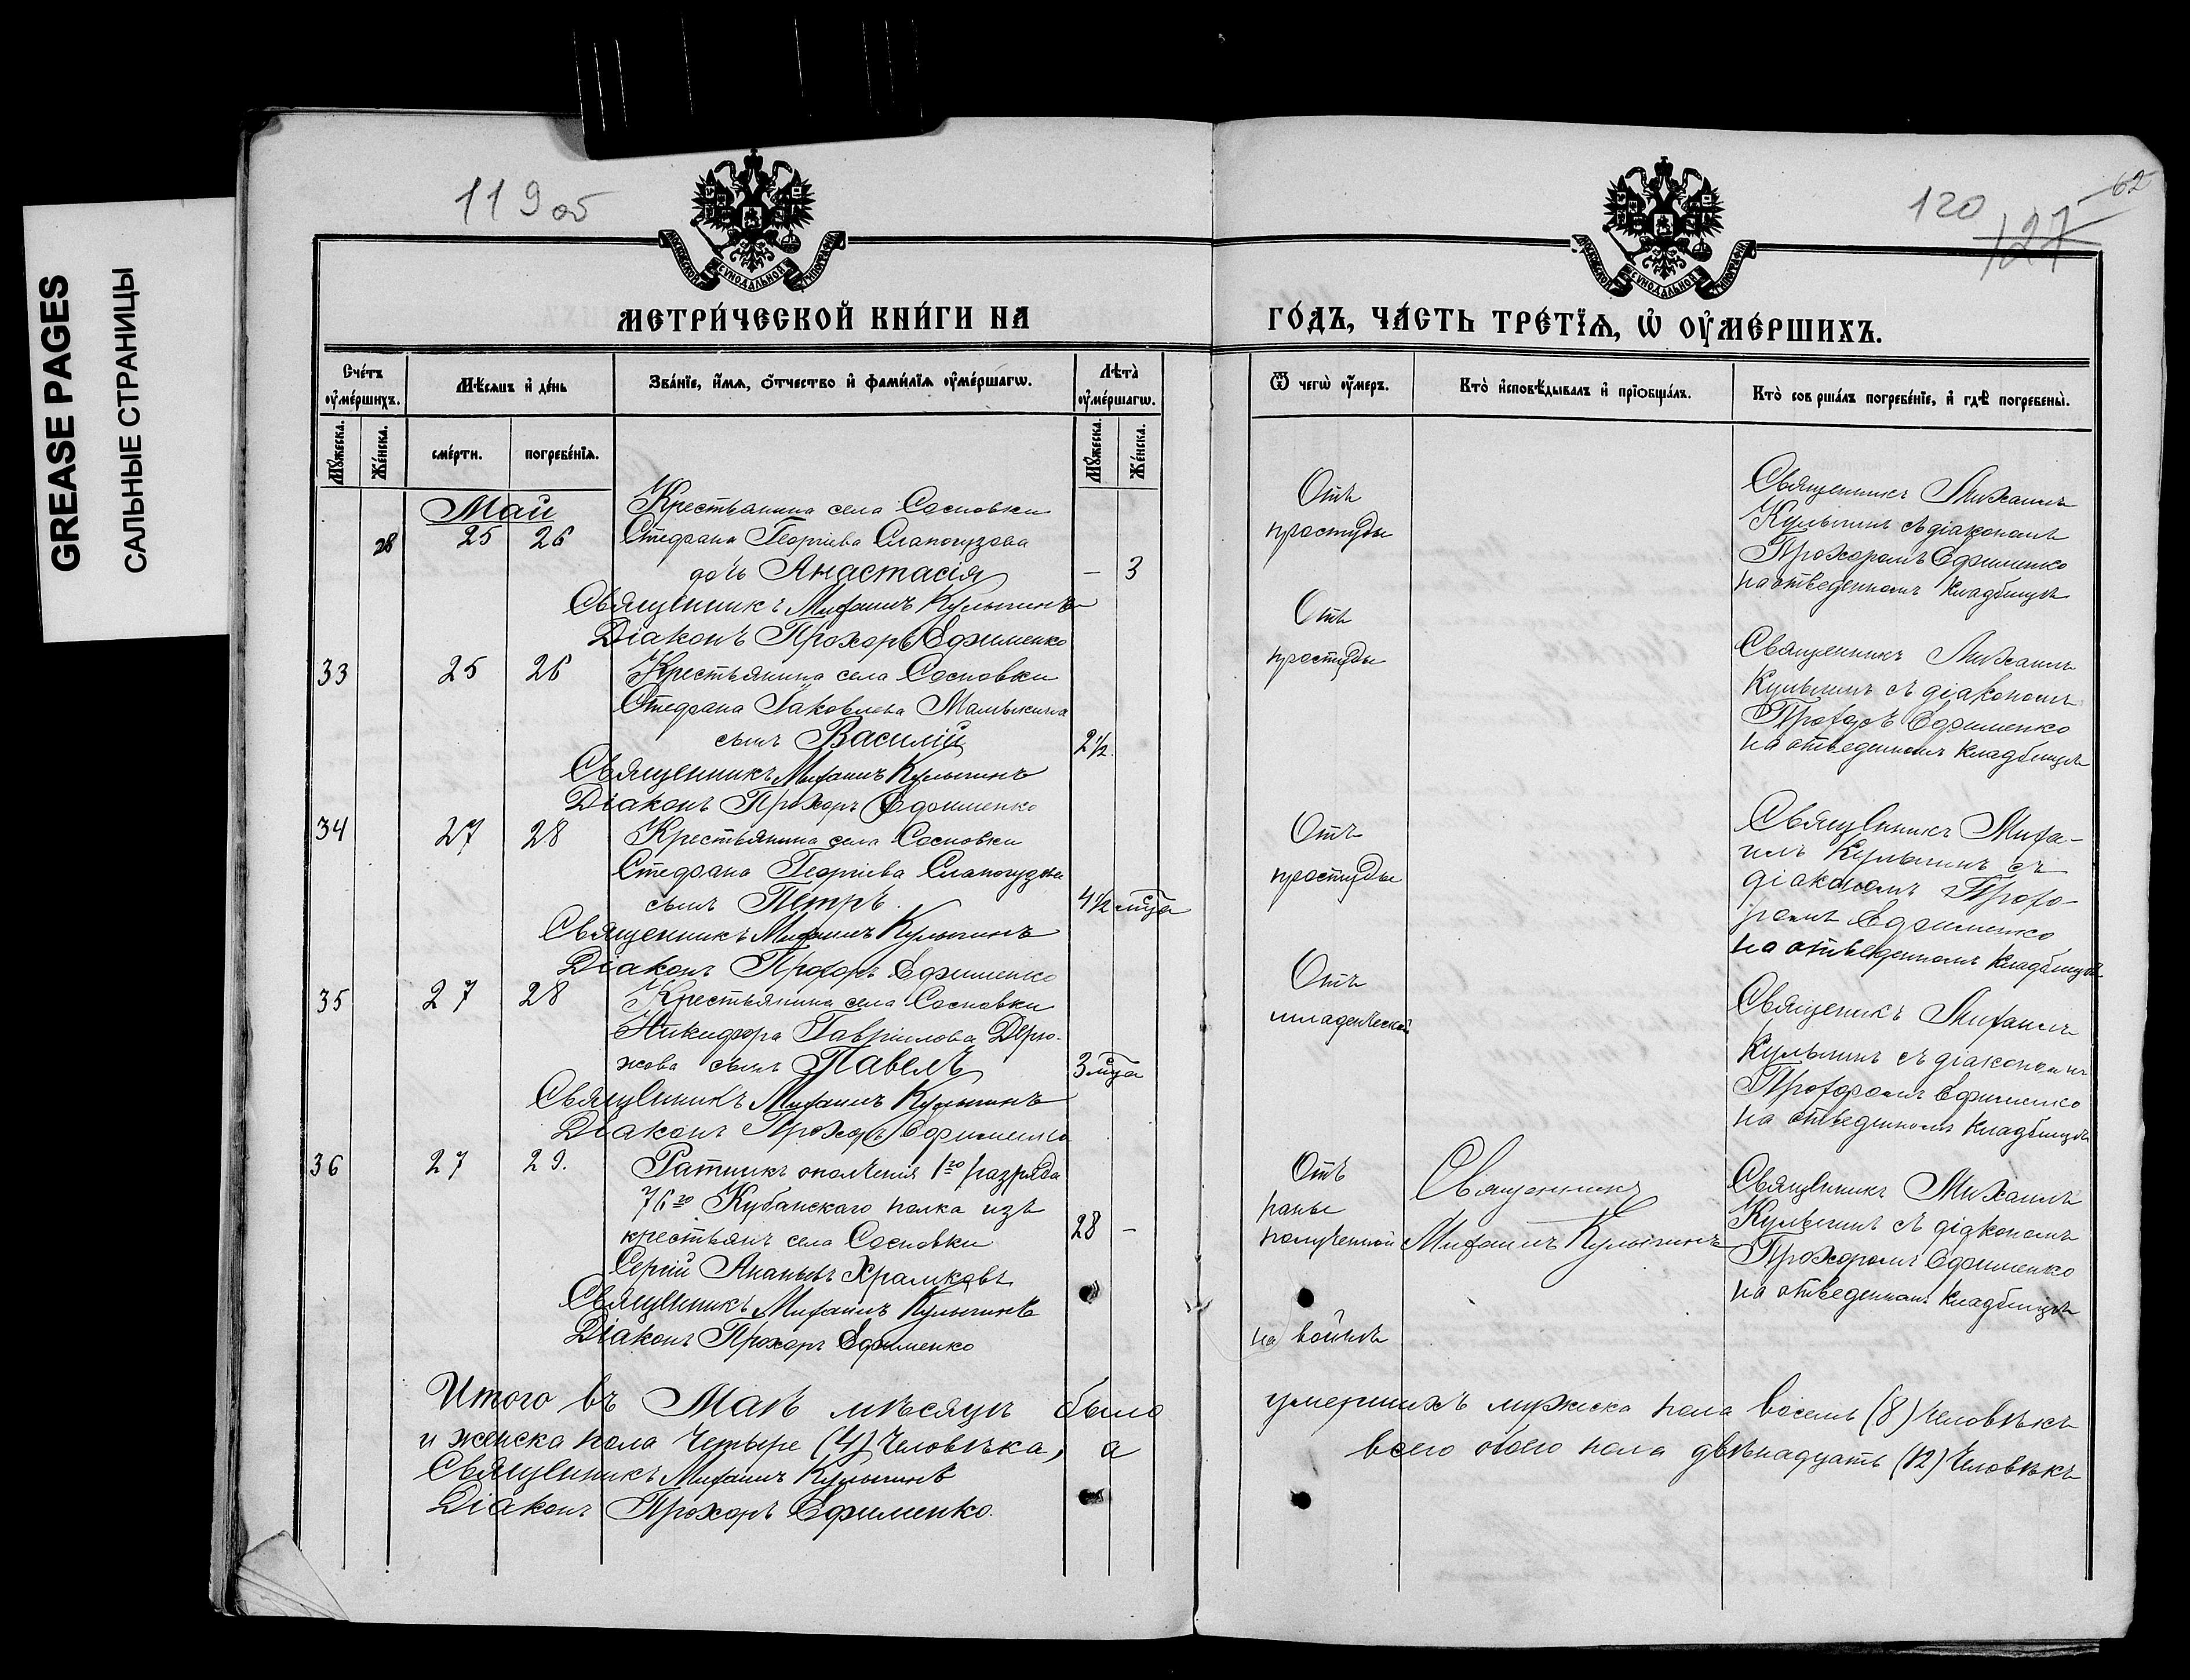 GREASE PAGES
САЛЬНЫЕ СТРАНИЦЫ
119об
МОСКОВСКОЙ СѴНОДАЛЬНОЙ ТИПОГРАФІИ
МЕТРИ́ЧЕСКОЙ КНИ́ГИ НА
Сче́тъ ᲂу҆ме́ршихъ.
Мѣ́сяцъ и҆ де́нь
Зва́нїе, и҆́мѧ, ѻ҆́тчество и҆ фами́лїѧ ᲂу҆ме́ршагѡ.
Лѣ́та ᲂу҆ме́ршагѡ.
Мꙋ́жеска.
Же́нска.
сме́рти.
погребе́нїѧ.
Мꙋ́жеска.
Же́нска.
Май
Крестьянина села Сосновки
28 25 26 Стефана Георгіева Слапогузова
дочь Анастасія — 3
Священникъ Михаилъ Кулыгинъ
Діаконъ Прохоръ Ефименко
33 25 26 Крестьянина села Сосновки
Стефана Іаковлева Малыхина
сынъ Василій 2½.
Священникъ Михаилъ Кулыгинъ
Діаконъ Прохоръ Ефименко
34 27 28 Крестьянина села Сосновки
Стефана Георгіева Слапогузова
сынъ Петръ. 4½ мца
Священникъ Михаилъ Кулыгинъ
Діаконъ Прохоръ Ефименко
35 27 28 Крестьянина села Сосновки
Никифора Гавріилова Дерю-
жова сынъ Павелъ 3 мца
Священникъ Михаилъ Кулыгинъ
Діаконъ Прохоръ Ефименко
36 27 29. Ратникъ ополченія 1го разряда
76го Кубанскаго полка изъ
крестьянъ села Сосновки 28 —
Сергій Ананьевъ Храмковъ
Священникъ Михаилъ Кулыгинъ
Діаконъ Прохоръ Ефименко
Итого въ Маѣ мѣсяцѣ было
и женска пола четыре (4) человѣка, а
Священникъ Михаилъ Кулыгинъ
Діаконъ Прохоръ Ефименко.
120
127
62
МОСКОВСКОЙ СѴНОДАЛЬНОЙ ТИПОГРАФІИ
ГО́ДЪ, ЧА́СТЬ ТРЕ́ТЇѦ, Ѡ҆ ᲂУ҆МЕ́РШИХЪ.
Ѿ чегѡ̀ ᲂу҆́меръ.
Кто̀ и҆сповѣ́дывалъ и҆ прїѡбща́лъ.
Кто̀ сов рша́лъ погребе́нїе, и҆ гдѣ̀ погребены̀.
Отъ
простуды
Священникъ Михаилъ
Кулыгинъ съ діакономъ
Прохоромъ Ефименко
на отведенномъ кладбищѣ
Отъ
простуды
Священникъ Михаилъ
Кулыгинъ съ діакономъ
Прохоръ Ефименко
на отведенномъ кладбищѣ
Отъ
простуды
Священникъ Миха-
илъ Кулыгинъ съ
діакономъ Прохо-
ромъ Ефименко
на отведенномъ кладбищѣ
Отъ
младенческой
Священикъ Михаилъ
Кулыгинъ съ діакономъ
Прохоромъ Ефименко
на отведенномъ кладбищѣ
Отъ
раны
полученной
на войнѣ
Священникъ
Михаилъ Кулыгинъ
Священникъ Михаилъ
Кулыгинъ съ діакономъ
Прохоромъ Ефименко
на отведенномъ кладбищѣ
умершихъ мужска пола восемь (8) человѣкъ
всего обоего пола двѣнадцать (12) человѣкъ